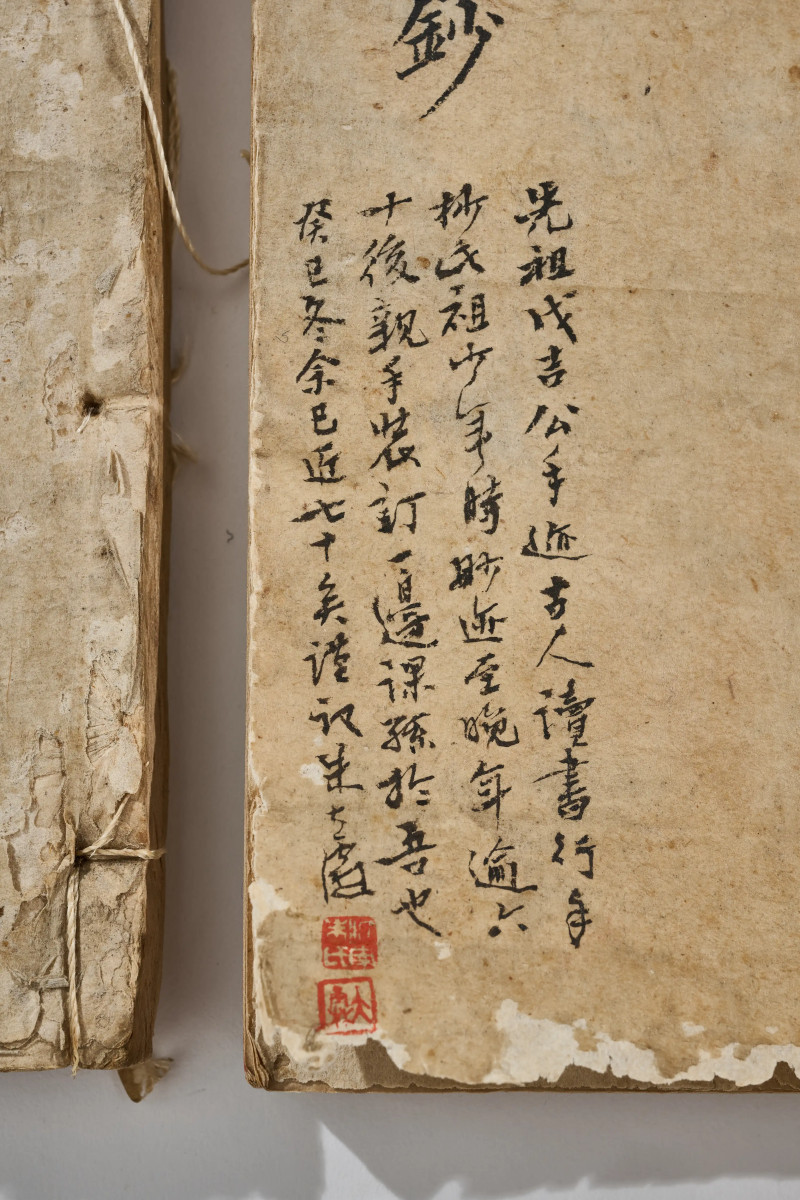 鈔
先祖戊吉公手迹古人讀書行手
抄此祖少年時抄迹至晚年逾六
十後親手裝訂一邊課孫於吾也
癸巳冬余已近七十矣謹記朱